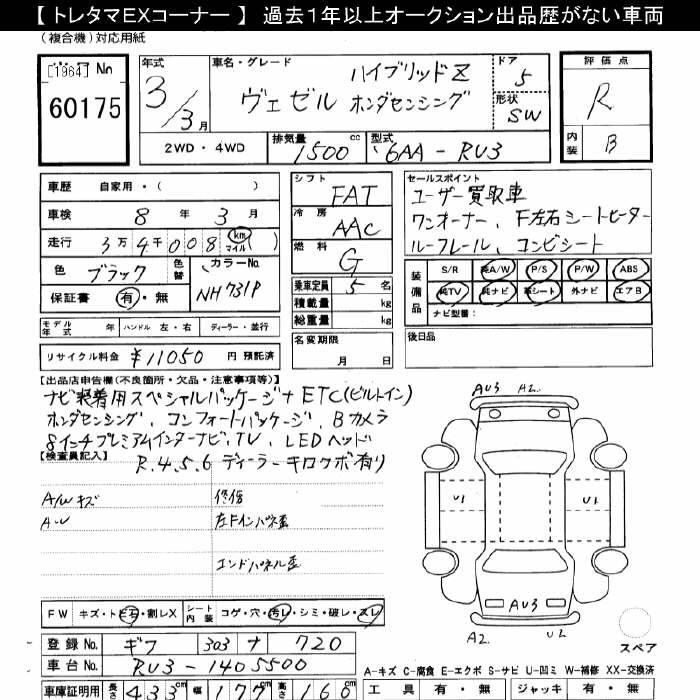 【 トレタマEXコーナー 】 過去1年以上オークション出品歴がない車両
(複合機) 対応用紙
[1964] No
60175
年式
3/3月
車名・グレード
ハイブリッドZ
ヴェゼル ホンダセンシング
ドア
5
形状
SW
評価点
R
内装
B
2WD ・ 4WD
排気量
1500 cc
型式
6AA - RU3
車歴 自家用・( )
車検 8 年 3 月
走行 3万4千008 km マイル ( )
色 ブラック 色替
カラーNo.
NH731P
保証書 有・無
シフト
FAT
冷房
AAC
燃料
G
乗車定員 5 名
積載量 kg
総重量 kg
セールスポイント
ユーザー買取車
ワンオーナー、F左右シートヒーター
ルーフレール、コンビシート
装備品
S/R 純A/W P/S P/W ABS
純TV 純ナビ 革シート 外ナビ エアB
ナビ型番:
モデル年式 年 ハンドル 左・右 ディーラー・並行
名変期限
月 日
後日品
リサイクル料金 ¥11050 円 預託済
【出品店申告欄(不良箇所・欠品・注意事項等)】
ナビ装着用スペシャルパッケージ+ETC(ビルトイン)
ホンダセンシング、コンフォートパッケージ、Bカメラ
8インチプレミアムインターナビ、TV、LEDヘッド
【検査員記入】
R.4.5.6 ディーラーキロクボ有り
A/Wキズ
A・U
修復
左Fインパネ歪
エンドパネル歪
AU3 A2
U1 U1
AU3
A2 U2
スペア
FW キズ・トビ石・割レX
シート内装 コゲ・穴・汚レ・シミ・破レ・スレ
登録No. ギフ 303 ナ 720
車台No. RU3-1405500
車庫証明用 長さ 433cm 幅 177cm 高さ 160cm
A-キズ C-腐食 E-エクボ S-サビ U-凹ミ W-補修 XX-交換済
工具 有・無 ジャッキ 有・無